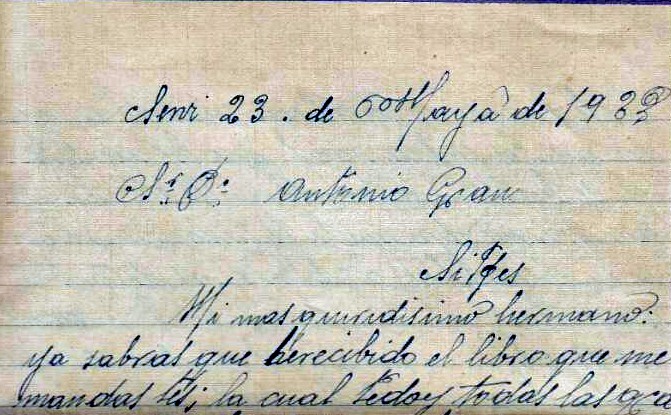 23. de Mayo de
Sr. Dn. Antonio Grau
Sitges
Mi mas queridisimo hermano:
ya sabras que he recibido el libro que me
mandastes; la cual te doy todas las gra